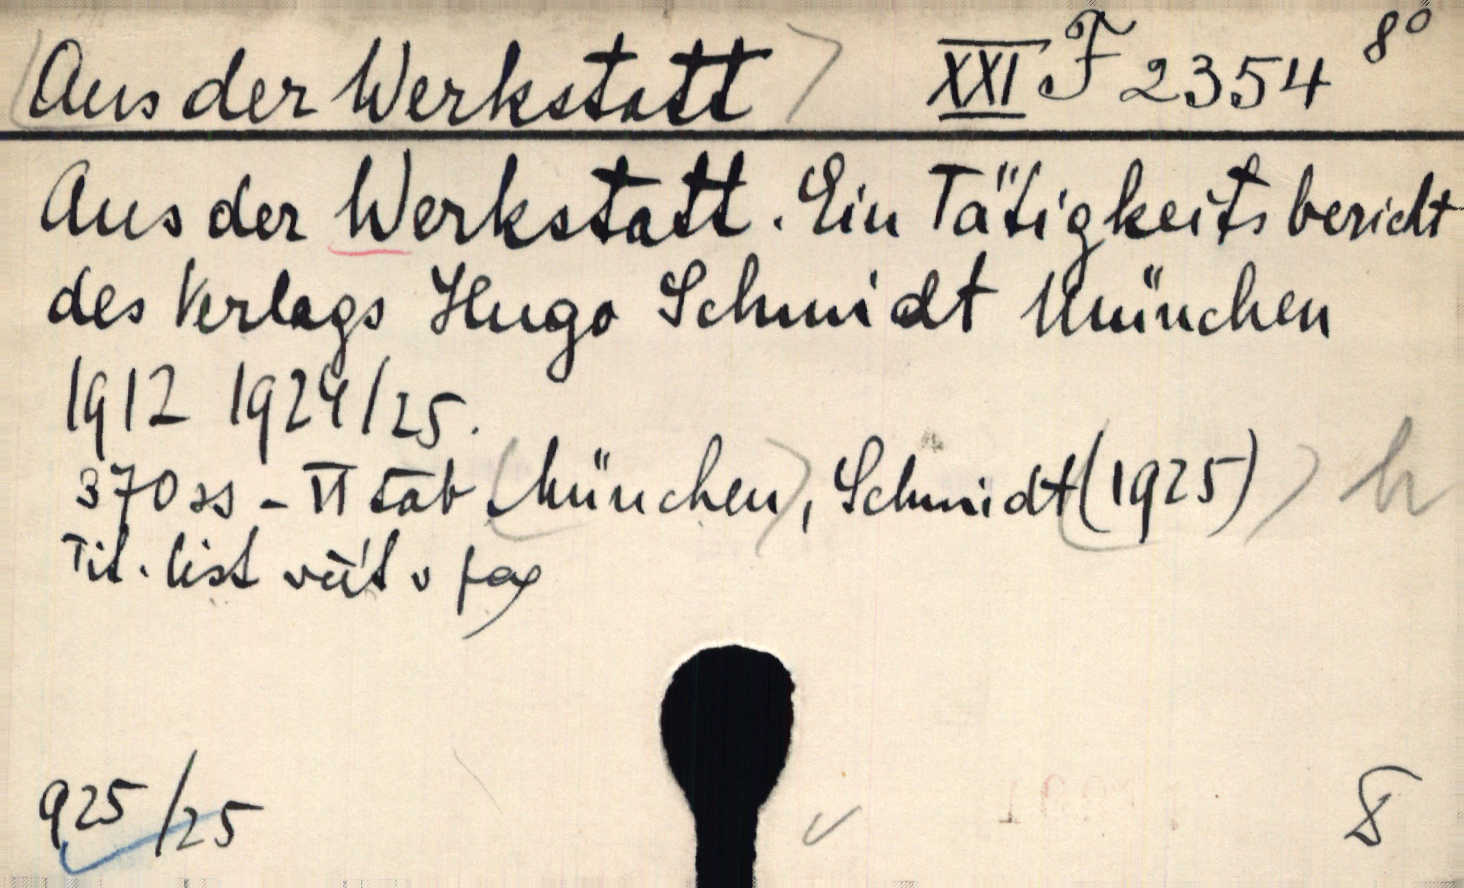 (Aus der Werkstatt) XXI F 2354 8°
Aus der Werkstatt. Ein Tätigkeitsbericht
des Verlags Hugo Schmidt München
1912 1924/25.
370 ss - VI tab (München), Schmidt (1925)
Tit. list
925/25